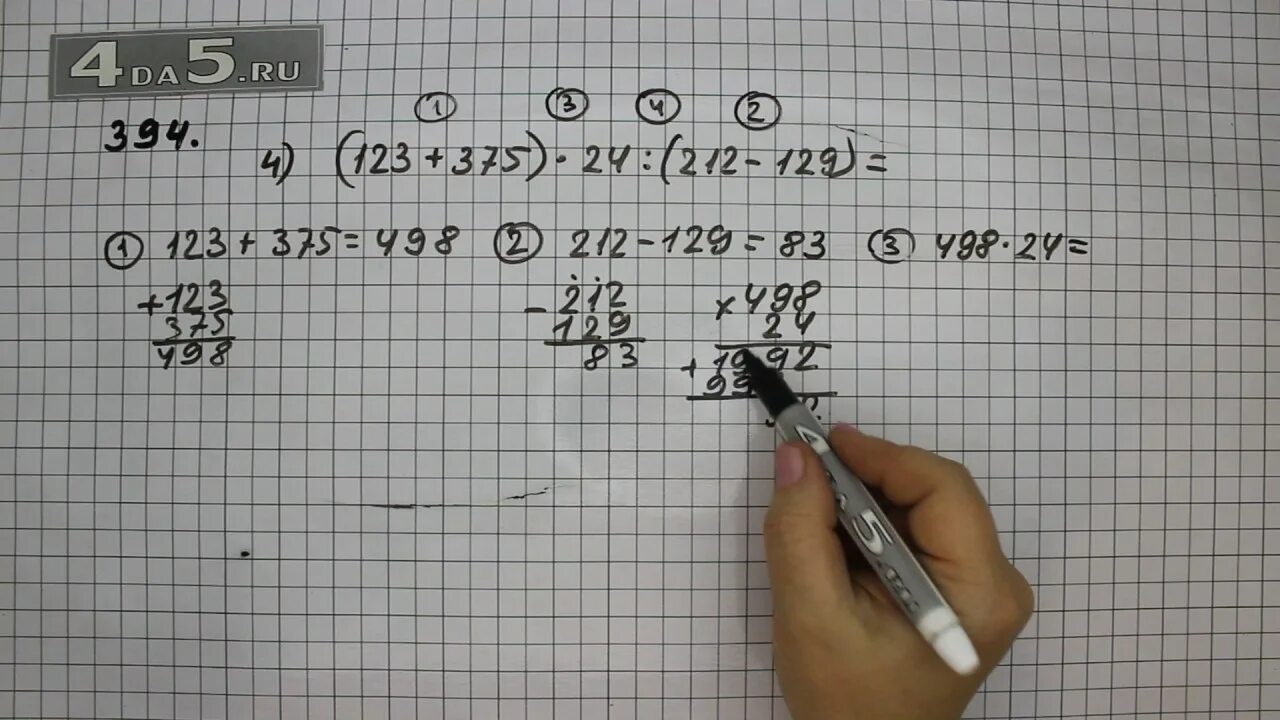 4DA5.RU
394.
1 3 4 2
4) (123 + 375) · 24 : (212 - 129) =
1 123 + 375 = 498 2 212 - 129 = 83 3 498 · 24 =
+ 123
375
498
- 212
129
83
x 498
24
+ 1992
99